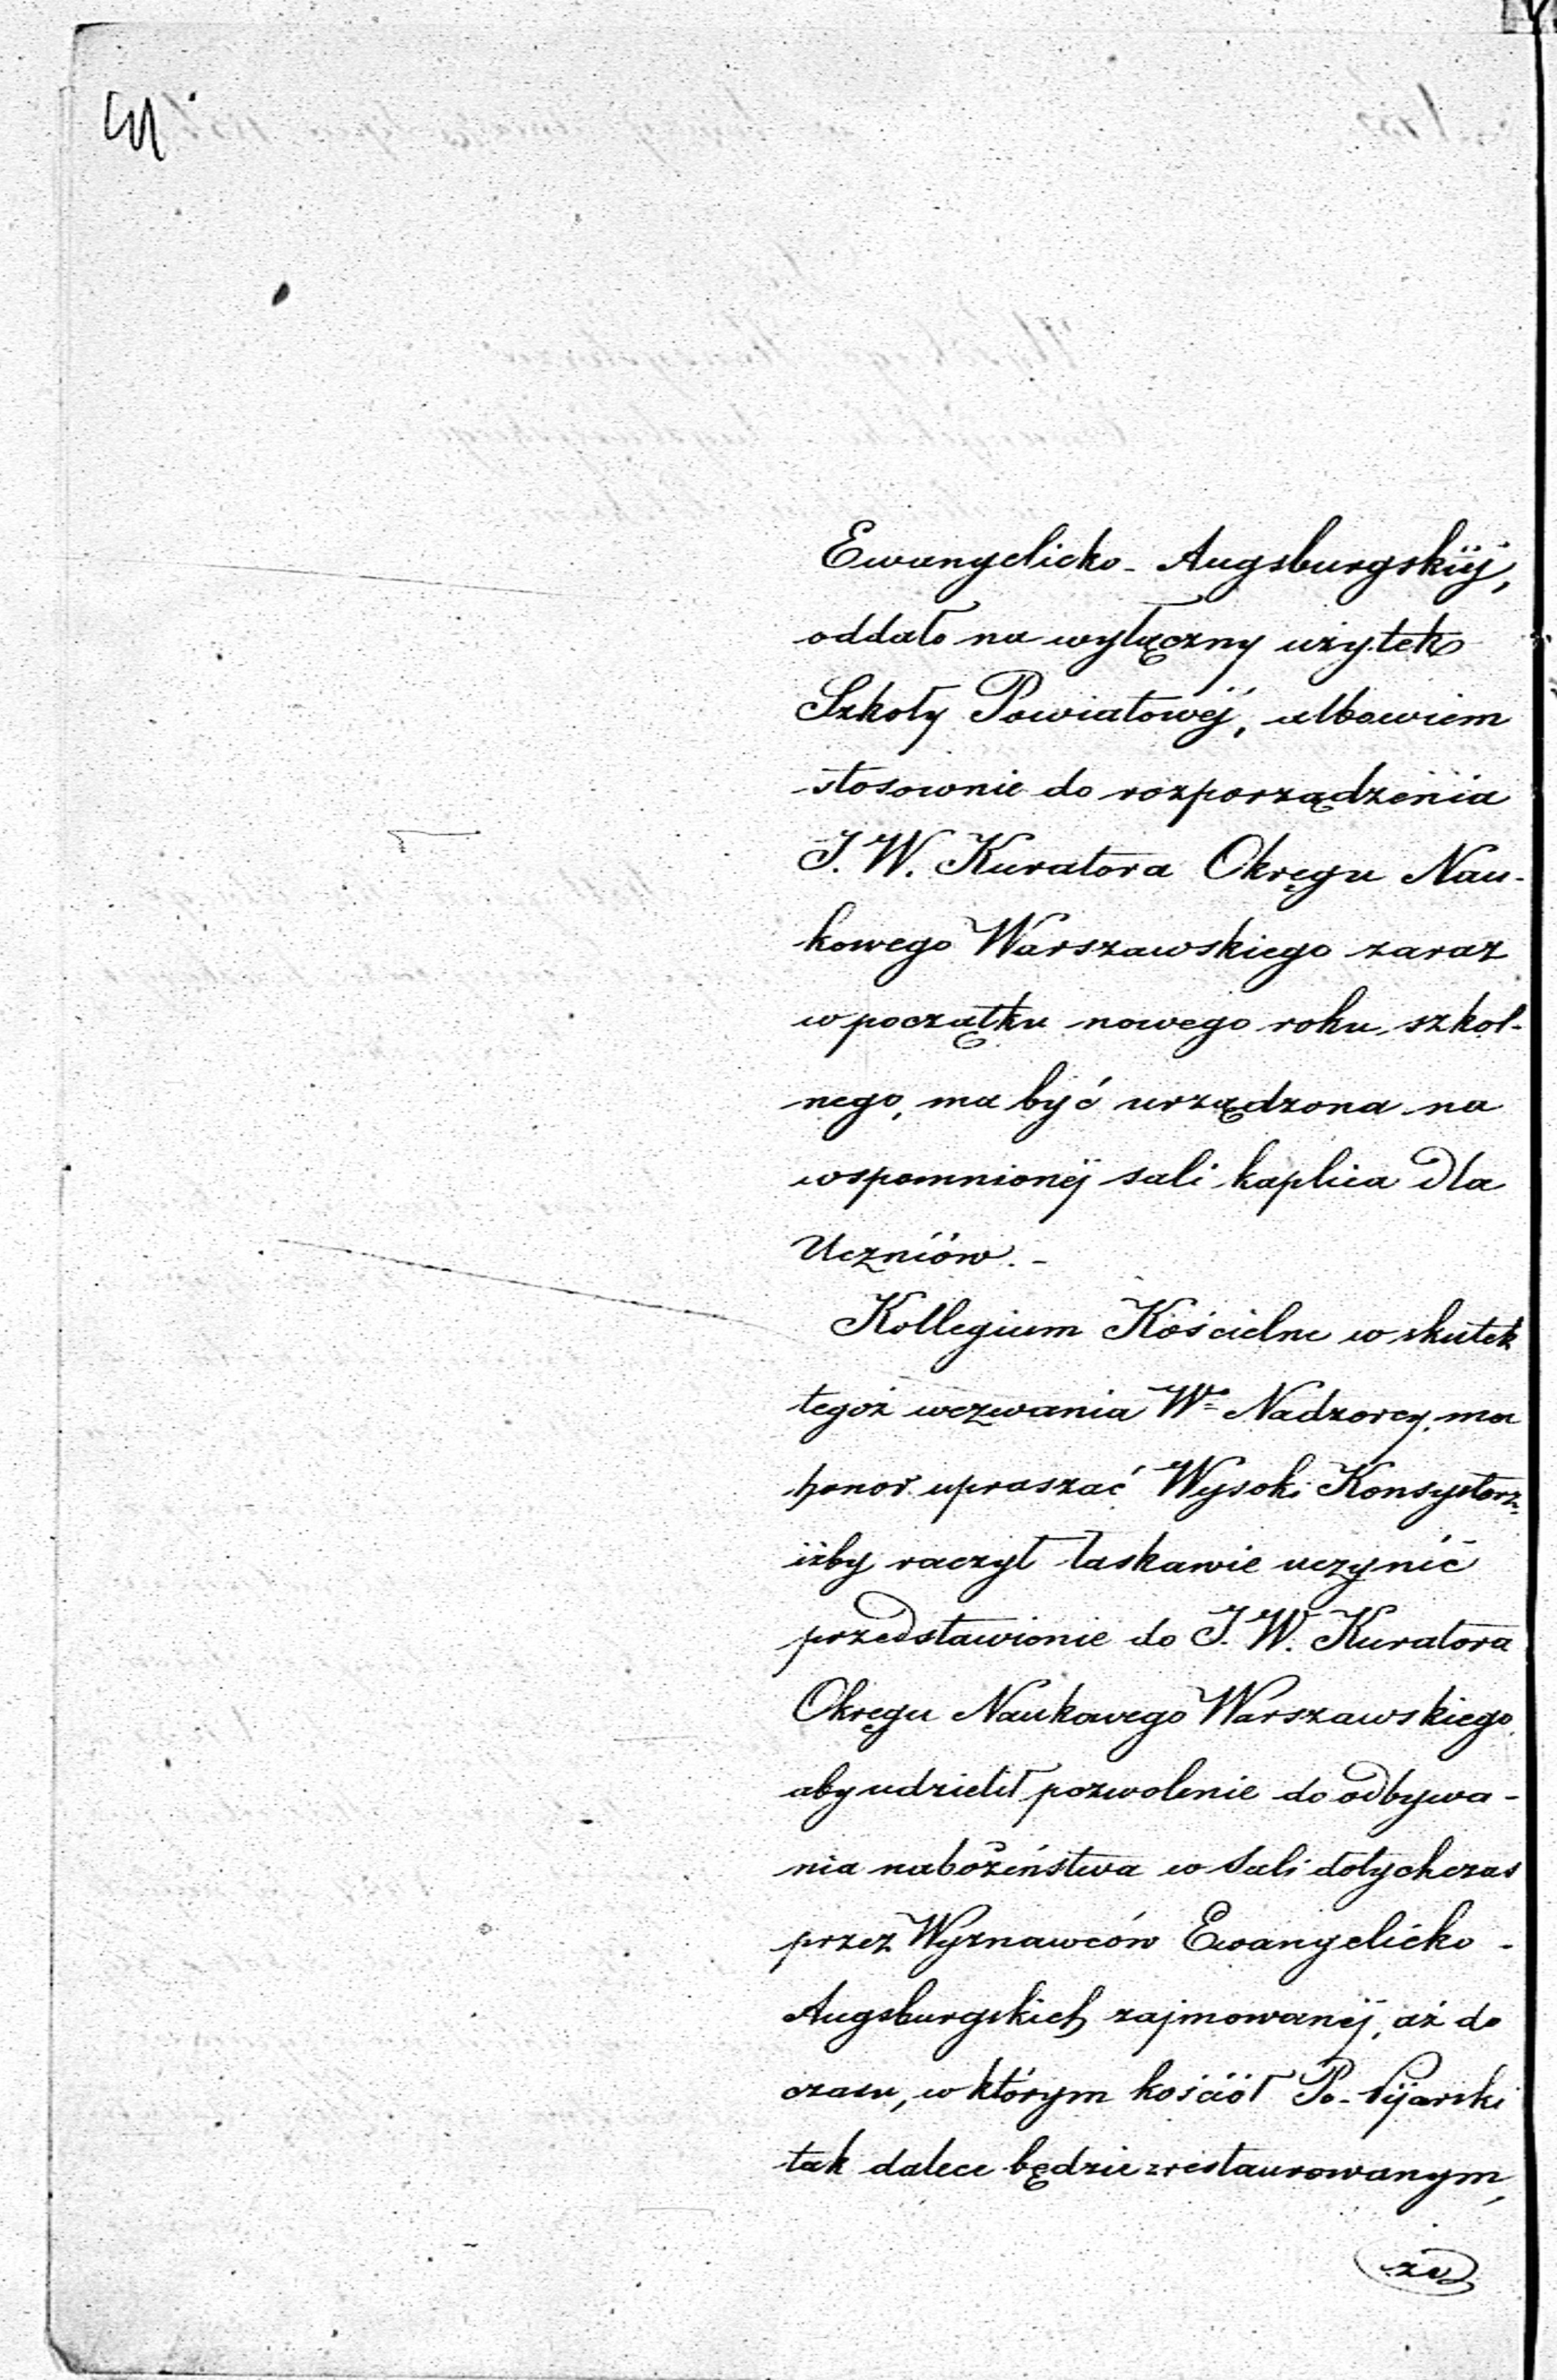 Ewangelicko-Augsburgskiéj,
oddało na wyłączny użytek
Szkoły Powiatowéj, albowiem
stosownie do rozporządzenia
J. W. Kuratora Okręgu Nau-
kowego Warszawskiego zaraz
w początku nowego roku szkol-
nego, ma być urządzona na
wspomnionéj sali kaplica dla
Uczniów.-
Kollegium Kościelne w skutek
tegoż wezwania Wo Nadzorcy, ma
honor upraszać Wysoki Konsystorz,
iżby raczył łaskawie uczynić
przedstawienie do J. W. Kuratora
Okręgu Naukowego Warszawskiego,
aby udzielił pozwolenie do odbywa-
nia nabożeństwa w Sali dotychczas
przez Wyznawców Ewangelicko-
Augsburgskich zajmowanéj, aż do
czasu, w którym kościół Po-Pijarski
tak dalece będzie zrestaurowanym,
że